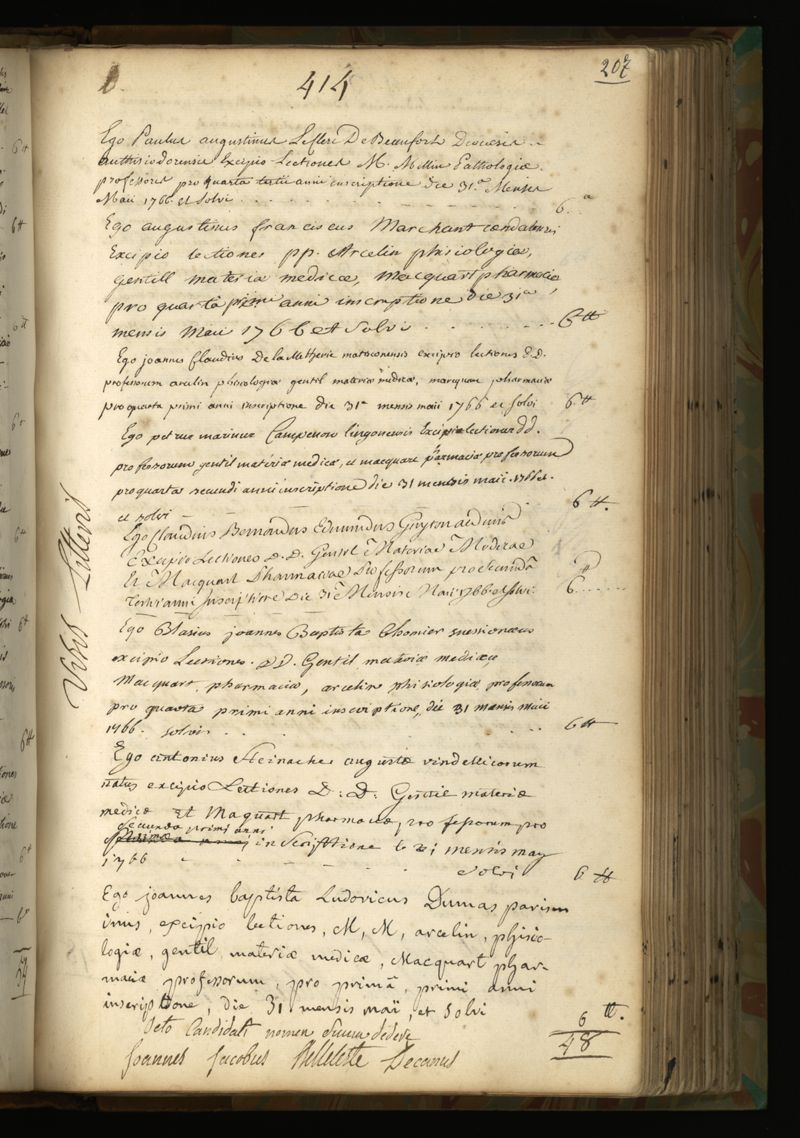 414
207
Ego Paulus augustinus Leclerc De Beaufort Diocesis
authisiodorensis Excipio Lectiones M. Mellin Pathologiæ
professoris pro quarta tertii anni inscriptione die 31.a Mensis
Maii 1766. et Solvi . . . . 6..tt
Ego augustinus franciscus Marchant
Excipio lectiones pp. Arcelin phisiologiæ,
gentill materia medicæ, Macquart pharmaciæ,
pro quarta primi anni inscriptione die 31a
mensis Maii 1766 et Solvi . . . . . . . 6 tt
Ego joannes Claudius De la Metherie matisconensis excipio lectiones d.d.
professorum arcelin phisiologiæ gentil materiæ medicæ, macquart pharmaciæ
pro quarta primi anni inscriptione die 31a mensis maii 1766 et solvi 6 tt
Ego petrus marinus Campenon lingonensis Excipio lectiones dd.
professorum gentil materiæ medicæ, et macquart pharmaciæ professorum
pro quarta secundi anni inscriptione die 31 mensis maii 1766.
et solvi 6 tt.
Ego Claudius Bernardus Edmundus Guyron
Excipio Lectiones D. D. Gentil Materiæ Medicæ
Et Macquart Pharmaciæ Professorum pro secundâ
Tertii anni Inscriptione Die 31a Mensis Maii 1766 et Solvi. 6 tt
Ego Blasius joannes Baptista Chomier suessionæus
excipio Lectiones. D D. Gentil materiæ medicæ
Macquart, pharmaciæ, arcelin phisiologiæ professorum
pro quarta primi anni inscriptione, die 31 mensis maii
1766. solvi. . . . . 6 tt
Ego antonius Steinacher augustæ vindellicorum
natus excipio Lectiones D: D: Gentil materiæ
medicæ Et Maquart pharmaciæ, professorum pro
secunda primi anni
inscriptione le 31 mensis may
1766 solvi 6 tt
Ego joannes baptista Ludovicus Dumas parisi-
inus, excipio lectiones, M, M, arcelin, phisio-
logiæ, gentil materiæ medicæ, Macquart phar-
maciæ professorum, pro primâ, primi anni
inscriptione, die 31 mensis maii, et solvi
6 tt.
octo Candidati nomen suum dedere
48
Joannes Jacobus Belleteste Decanus